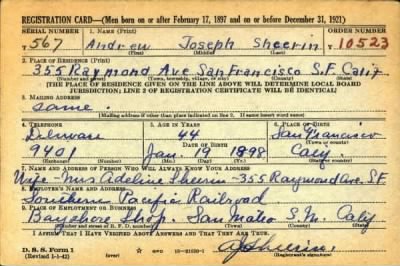 REGISTRATION CARD—(Men born on or after February 17, 1897 and on or before December 31, 1921)
SERIAL NUMBER 1. NAME (Print) ORDER NUMBER
T 567 Andrew Joseph Sheerin T 10523
(First) (Middle) (Last)
2. PLACE OF RESIDENCE (Print)
355 Raymond Ave San Francisco S.F. Calif
(Number and street) (Town, township, village, or city) (County) (State)
[THE PLACE OF RESIDENCE GIVEN ON THE LINE ABOVE WILL DETERMINE LOCAL BOARD
JURISDICTION; LINE 2 OF REGISTRATION CERTIFICATE WILL BE IDENTICAL]
3. MAILING ADDRESS
Same.
[Mailing address if other than place indicated on line 2. If same insert word same]
4. TELEPHONE 5. AGE IN YEARS 6. PLACE OF BIRTH
Delaware 44 San Francisco
DATE OF BIRTH (Town or county)
9401 Jan. 19 1898 Caly.
(Mo.) (Day) (Yr.) (State or country)
7. NAME AND ADDRESS OF PERSON WHO WILL ALWAYS KNOW YOUR ADDRESS
Wife - Mrs Adeline Sheerin - 355 Raymond Ave. S.F.
8. EMPLOYER'S NAME AND ADDRESS
Southern Pacific Railroad
9. PLACE OF EMPLOYMENT OR BUSINESS
Bayshore Shop. San Mateo S.M. Caly
(Number and street or R. F. D. number) (Town) (County) (State)
I AFFIRM THAT I HAVE VERIFIED ABOVE ANSWERS AND THAT THEY ARE TRUE.
D. S. S. Form 1
(Revised 1-1-42) (over) 16—21630-1 A J Sheerin.
(Registrant's signature)